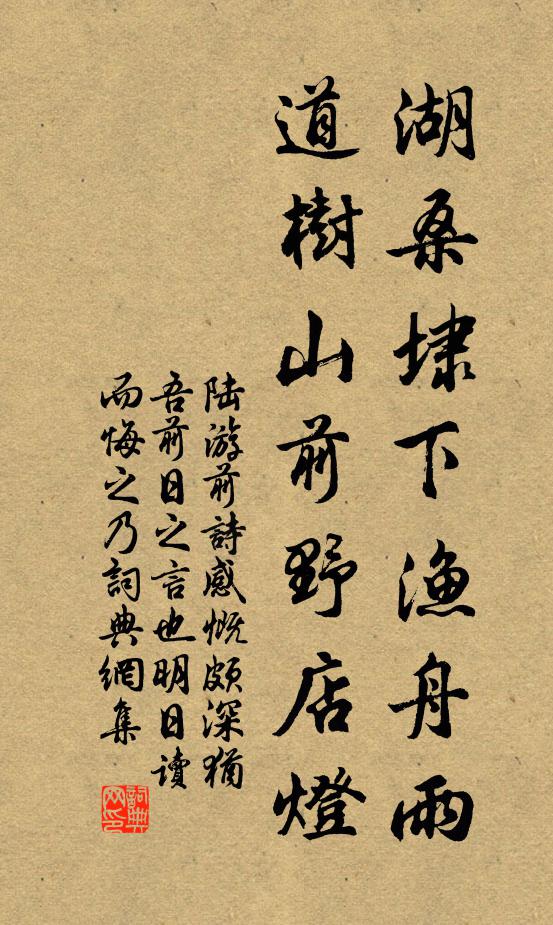 湖桑埭下漁舟雨
道樹山前野店燈
陆游前詩感慨頗深猶
吾前日之言也明日读
而悔之乃詞典網集
詞典网印